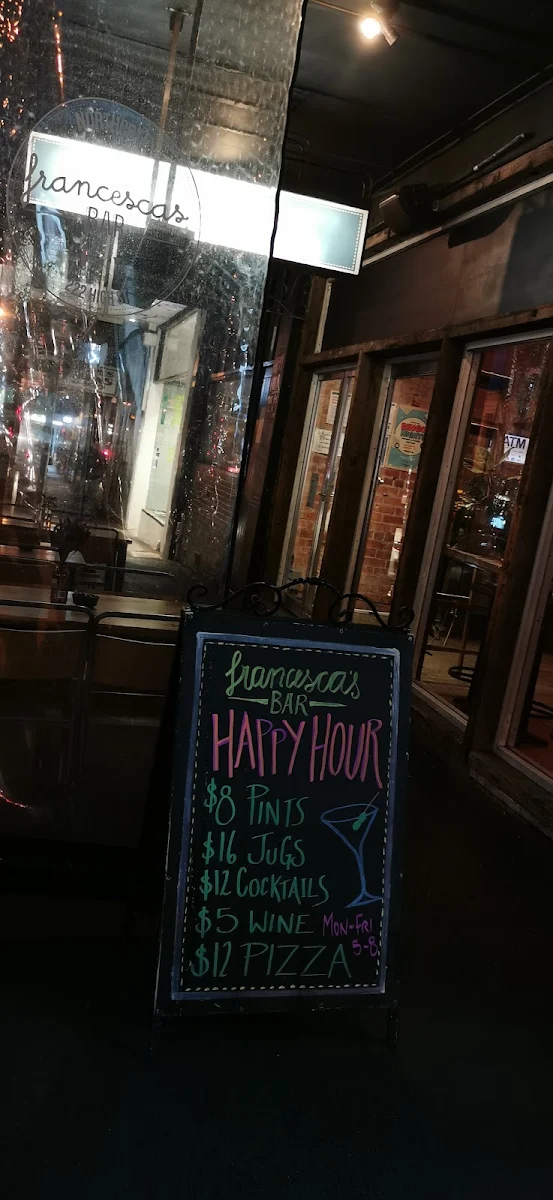 NORTHCOTE
francescas
BAR
222 HIGH ST
ATM
francesca's
BAR
HAPPY HOUR
$8 PINTS
$16 JUGS
$12 COCKTAILS
$5 WINE MON-FRI
$12 PIZZA 5-8